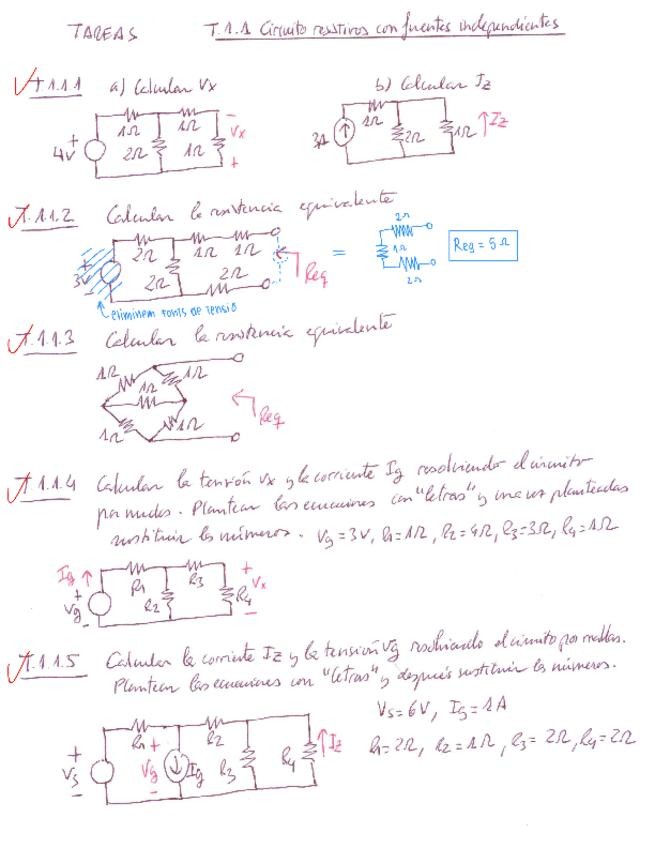 TAREAS T.1.1 Circuito resistivos con fuentes independientes
T.1.1.1 a) Calcular Vx b) Calcular Iz
1Ω 1Ω
4V + 2Ω 1Ω - Vx +
3A 1Ω 2Ω 1Ω Iz
T.1.1.2 Calcular la resistencia equivalente
3V + - 2Ω 2Ω 1Ω 1Ω 2Ω Req
= 2Ω 1Ω 2Ω Req = 5Ω
eliminem fonts de tensió
T.1.1.3 Calcular la resistencia equivalente
1Ω 1Ω 1Ω
1Ω 1Ω Req
T.1.1.4 Calcular la tensión Vx y la corriente Ig resolviendo el circuito
por nudos. Plantear las ecuaciones con "letras" y una vez planteadas
sustituir los números. Vg = 3V, R1 = 1Ω, R2 = 4Ω, R3 = 3Ω, R4 = 1Ω
Ig R1 R3 + Vx -
+ Vg - R2 R4
T.1.1.5 Calcular la corriente Iz y la tensión Vg resolviendo el circuito por mallas.
Plantear las ecuaciones con "letras" y después sustituir los números.
Vs = 6V, Ig = 1A
R1 = 2Ω, R2 = 1Ω, R3 = 2Ω, R4 = 2Ω
R1 R2
+ Vs - + Vg - Ig R3 R4 Iz